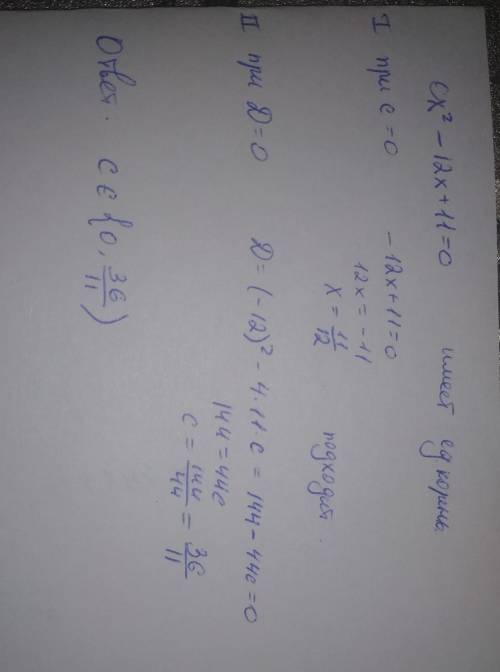 cx² - 12x + 11 = 0 имеет ед корень
I при c = 0 -12x + 11 = 0 подходит.
12x = -11
x = 11/12
II при D = 0 D = (-12)² - 4·11·c = 144 - 44c = 0
144 = 44c
c = 144/44 = 36/11
Ответ. c ∈ {0, 36/11}